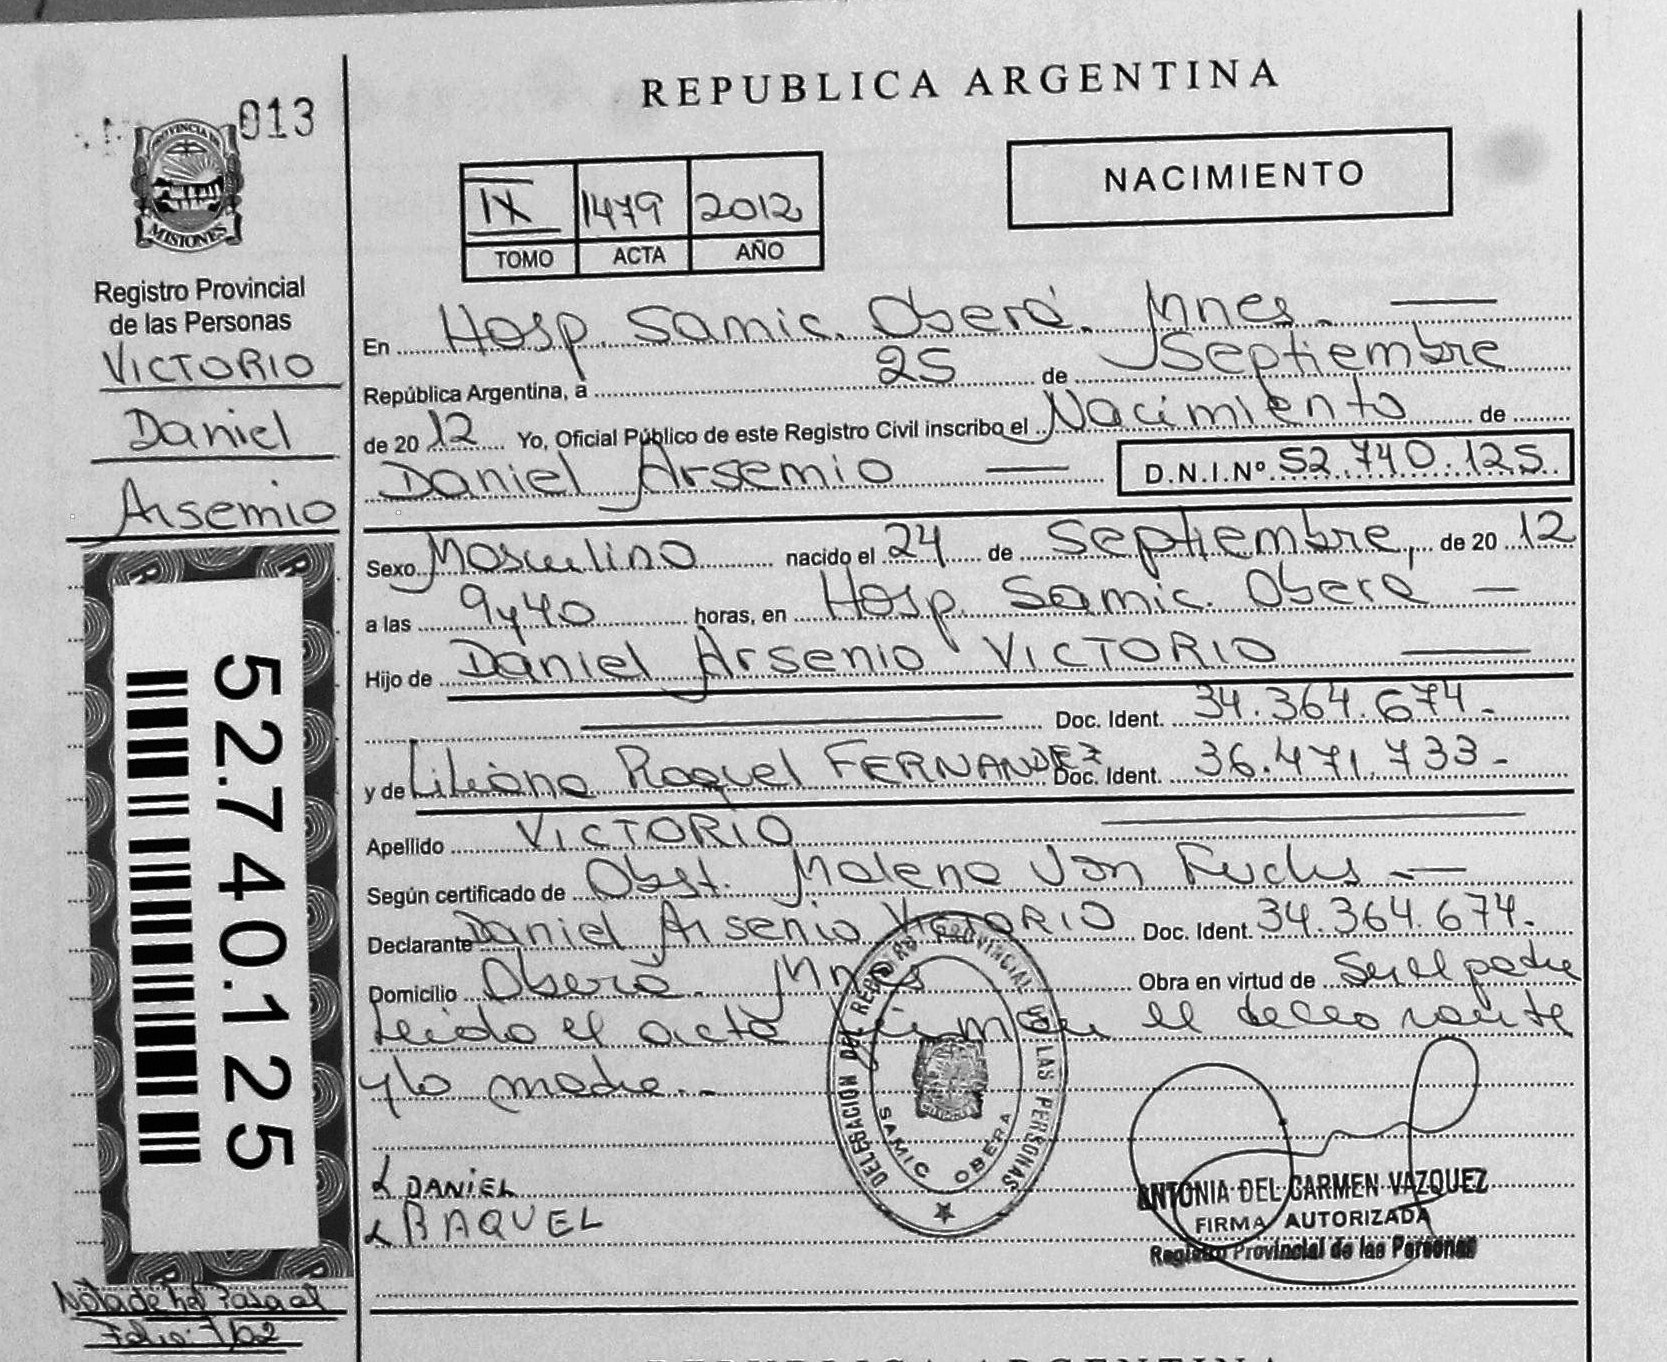 REPUBLICA ARGENTINA
013
PROVINCIA DE
MISIONES
Registro Provincial
de las Personas
VICTORIO
Daniel
Arsemio
52.740.125
Nota de
Pasa al
Folio:
NACIMIENTO
IX 1479 2012
TOMO ACTA AÑO
En Hosp. Samic. Oberá. Mnes.
República Argentina, a 25 de Septiembre
de 2012 Yo, Oficial Público de este Registro Civil inscribo el Nacimiento de
Daniel Arsemio D.N.I.Nº 52.740.125
Sexo Masculino nacido el 24 de Septiembre, de 2012
a las 9y40 horas, en Hosp. Samic. Oberá
Hijo de Daniel Arsenio VICTORIO
Doc. Ident. 34.364.674.-
y de Liliana Raquel FERNANDEZ Doc. Ident. 36.471.733-
Apellido VICTORIO
Según certificado de Obst. Malena Von Fuchs
Declarante Daniel Arsenio VICTORIO Doc. Ident. 34.364.674.
Domicilio Oberá. Mnes Obra en virtud de Ser el padre
Leido el acta firman el declarante
y la madre.-
DELEGACIÓN DEL REGISTRO PROVINCIAL DE LAS PERSONAS
SAMIC OBERA
DANIEL
RAQUEL
ANTONIA DEL CARMEN VAZQUEZ
FIRMA AUTORIZADA
Registro Provincial de las Personas
REPUBLICA ARGENTINA